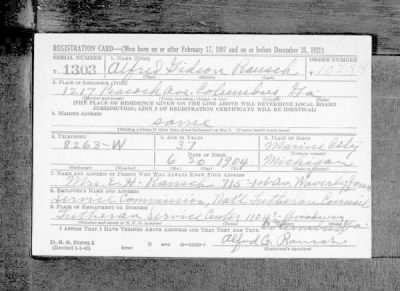 REGISTRATION CARD—(Men born on or after February 17, 1897 and on or before December 31, 1921)
SERIAL NUMBER 1. NAME (Print) ORDER NUMBER
1303 Alfred Gideon Rausch 10289
2. PLACE OF RESIDENCE (Print)
1217 Peacock Ave. Columbus Ga.
(THE PLACE OF RESIDENCE GIVEN ON THE LINE ABOVE WILL DETERMINE LOCAL BOARD
JURISDICTION; LINE 2 OF REGISTRATION CERTIFICATE WILL BE IDENTICAL)
3. MAILING ADDRESS
same
(Mailing address if other than place indicated on line 2. If same insert word same)
4. TELEPHONE 5. AGE IN YEARS 6. PLACE OF BIRTH
8263-W 37 Marine City
DATE OF BIRTH
6 20 1904 Michigan
7. NAME AND ADDRESS OF PERSON WHO WILL ALWAYS KNOW YOUR ADDRESS
Mrs. Rausch 715 Waverly, Iowa
8. EMPLOYER'S NAME AND ADDRESS
Service Commission, Natl. Lutheran Council
9. PLACE OF EMPLOYMENT OR BUSINESS
Lutheran Service Center 1104 Broadway
Columbus Ga
I AFFIRM THAT I HAVE VERIFIED ABOVE ANSWERS AND THAT THEY ARE TRUE.
D. S. S. Form 1
Alfred G. Rausch
(Registrant's signature)